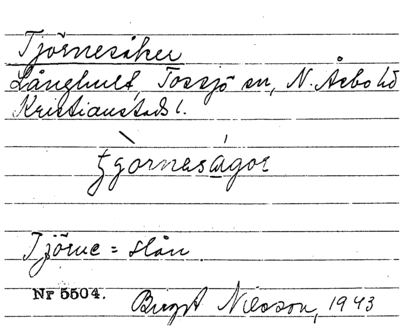 Tjörnesåker
Långhult, Tossjö sn, N. Åsbo hd
Kristianstads l.
tjò̀rneságor
Tjörne = slån.
Nr 5504. Birgit Nilsson, 1943